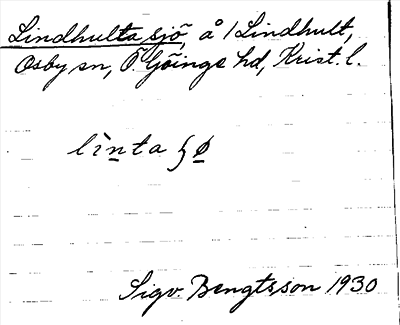 Lindhulta sjö, å /Lindhult,
Osby sn, Ö. Göinge hd, Krist. l.
lìnta ɧø
Sigv. Bengtsson 1930